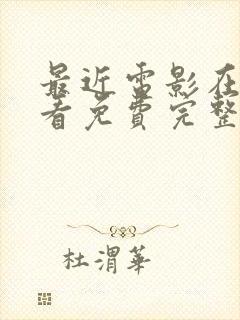 最近雷影在
看免费完整
杜渭華